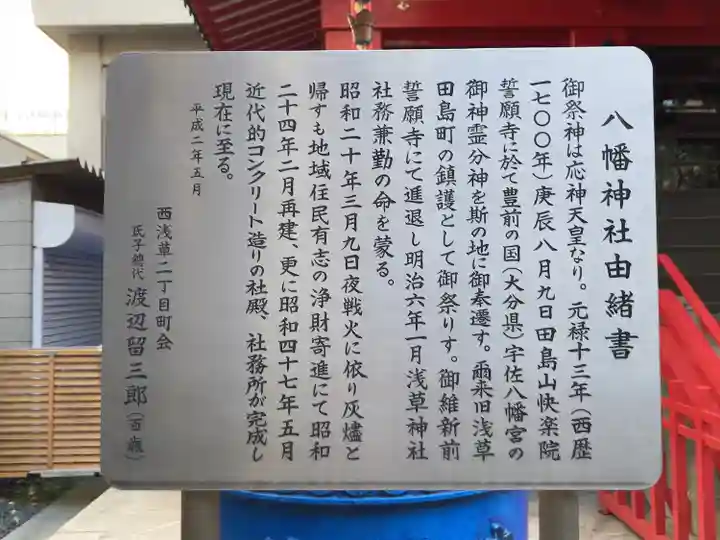 八幡神社由緒書
御祭神は応神天皇なり。元禄十三年(西歴
一七〇〇年)庚辰八月九日田島山快楽院
誓願寺に於て豊前の国(大分県)宇佐八幡宮の
御神霊分神を斯の地に御奉遷す。爾来旧浅草
田島町の鎮護として御祭りす。御維新前
誓願寺にて進退し明治六年一月浅草神社
社務兼勤の命を蒙る。
昭和二十年三月九日夜戦火に依り灰燼と
帰すも地域住民有志の浄財寄進にて昭和
二十四年二月再建、更に昭和四十七年五月
近代的コンクリート造りの社殿、社務所が完成し
現在に至る。
平成二年五月
西浅草二丁目町会
氏子総代 渡辺留三郎(百歳)